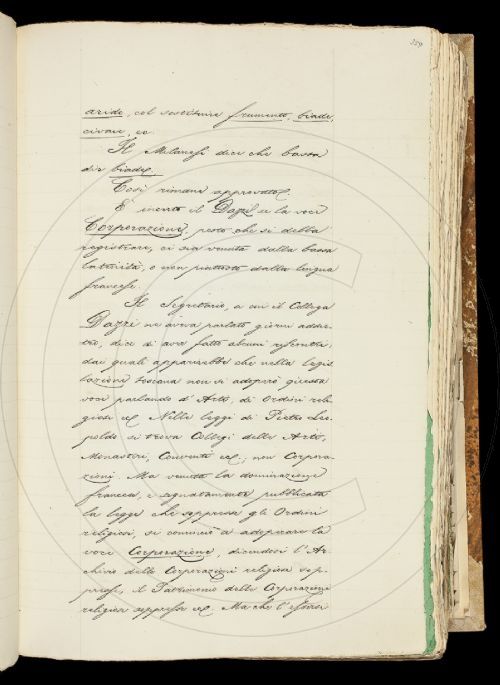 aride, col sostituire frumento, biade,
civaie, ec.
Il Milanesi dice che bassa
dir biade.
Così rimane approvato.
È incerto il Dazzi se la voce
Corporazione, posto che si debba
registrare, ci sia venuta dalla bassa
latinità, o non piuttosto dalla lingua
francese.
Il Segretario, a cui il Collega
Dazzi ne aveva parlato giorni addie-
tro, dice d'aver fatto alcuni riscontri,
dai quali apparirebbe che nella legis
lazione toscana non si adoprò questa
voce parlando d'Arti, di Ordini reli-
giosi ec. Nelle leggi di Pietro Leo-
poldo si trova Collegi delle Arti,
Monasteri, Conventi ec.; non Corpora-
zioni. Ma venuta la dominazione
francese, e segnatamente pubblicata
la legge che soppresse gli Ordini
religiosi, si cominciò a adoperare la
voce Corporazione, dicendosi l'Ar-
chivio delle Corporazioni religiose sop-
presse, il Patrimonio delle Corporazioni
religiose soppresse ec. Ma che l'essere